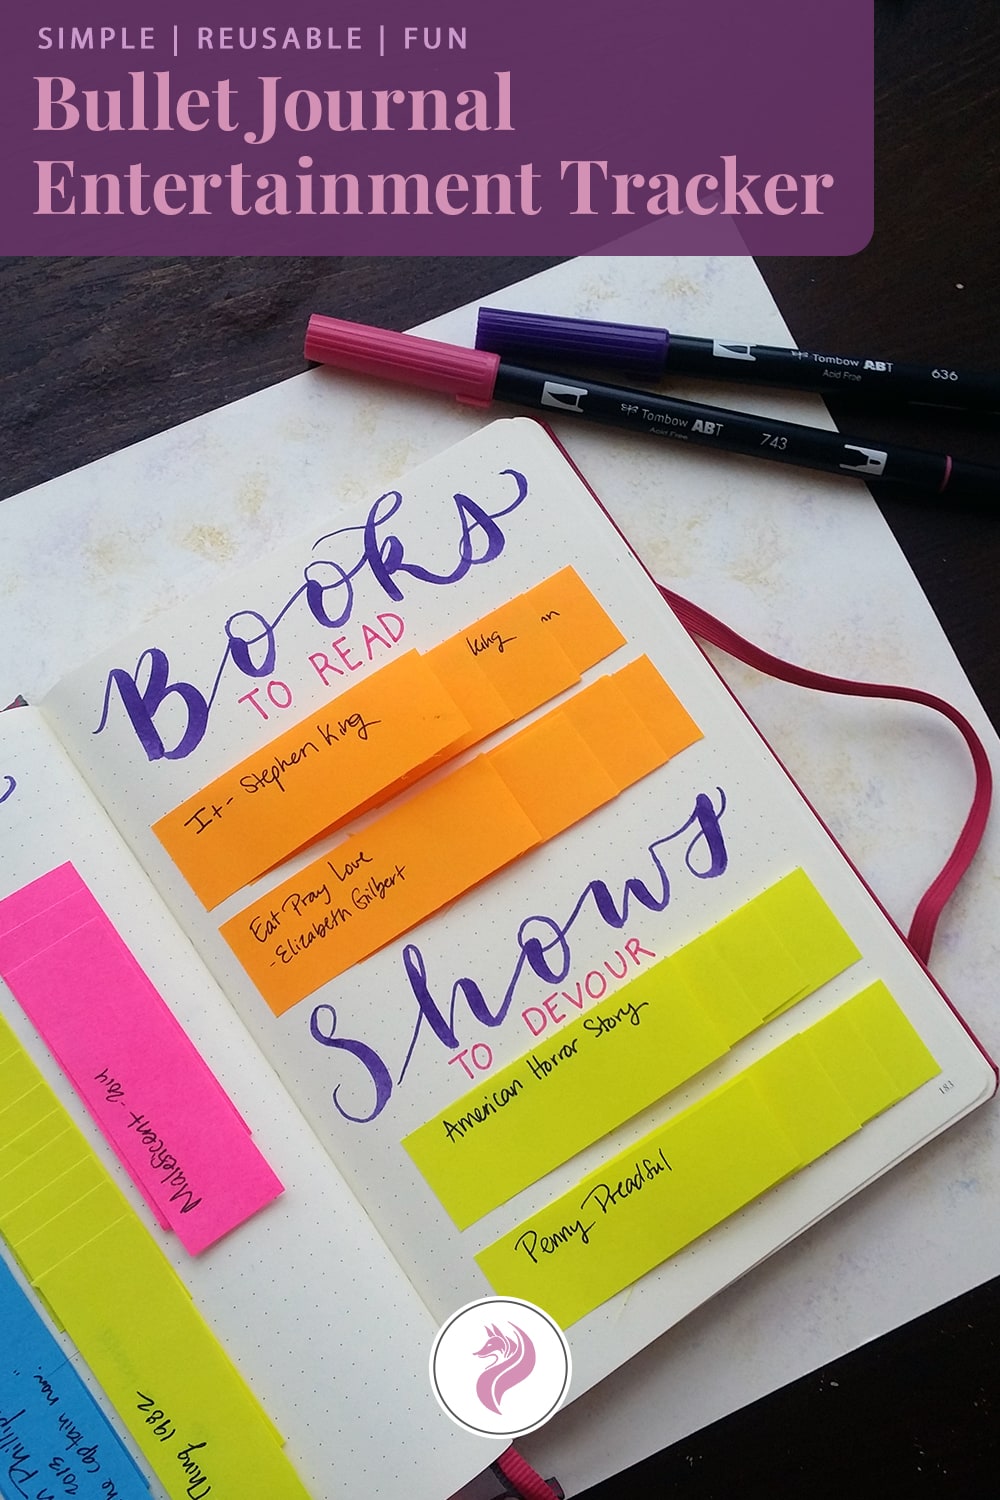 SIMPLE | REUSABLE | FUN
Bullet Journal
Entertainment Tracker
Tombow ABT
Acid Free
636
Tombow ABT
Acid Free
743
Books
TO READ
King
It - Stephen King
Eat Pray Love
- Elizabeth Gilbert
Shows
TO DEVOUR
American Horror Story
Penny Dreadful
183
Maleficent - 2014
Thing 1982
Phillips
2013
the captain now."